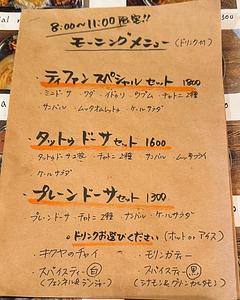 8:00〜11:00限定!!
モーニングメニュー (ドリンク付)
・ティファン スペシャル セット 1800
・ミニドーサ ・ワダ ・イドゥリ ・ウプム ・チャトニ 2種
・サンバル ・ムックオムレット ・ケールサラダ
・タットゥ ドーサセット 1600
タットゥドーサ2枚 ・チャトニ 2種 ・サンバル ・ムックフライ
・ケールサラダ
・プレーンドーサセット 1300
プレーンドーサ ・チャトニ 2種 ・サンバル ・ケールサラダ
◎ドリンクお選びください (ホット or アイス)
・キクヤのチャイ ・モリンガティー
・スパイスティー(白) ・スパイスティー(黒)
(フェンネル&ジンジャー) (シナモン&グリーンカルダモン)